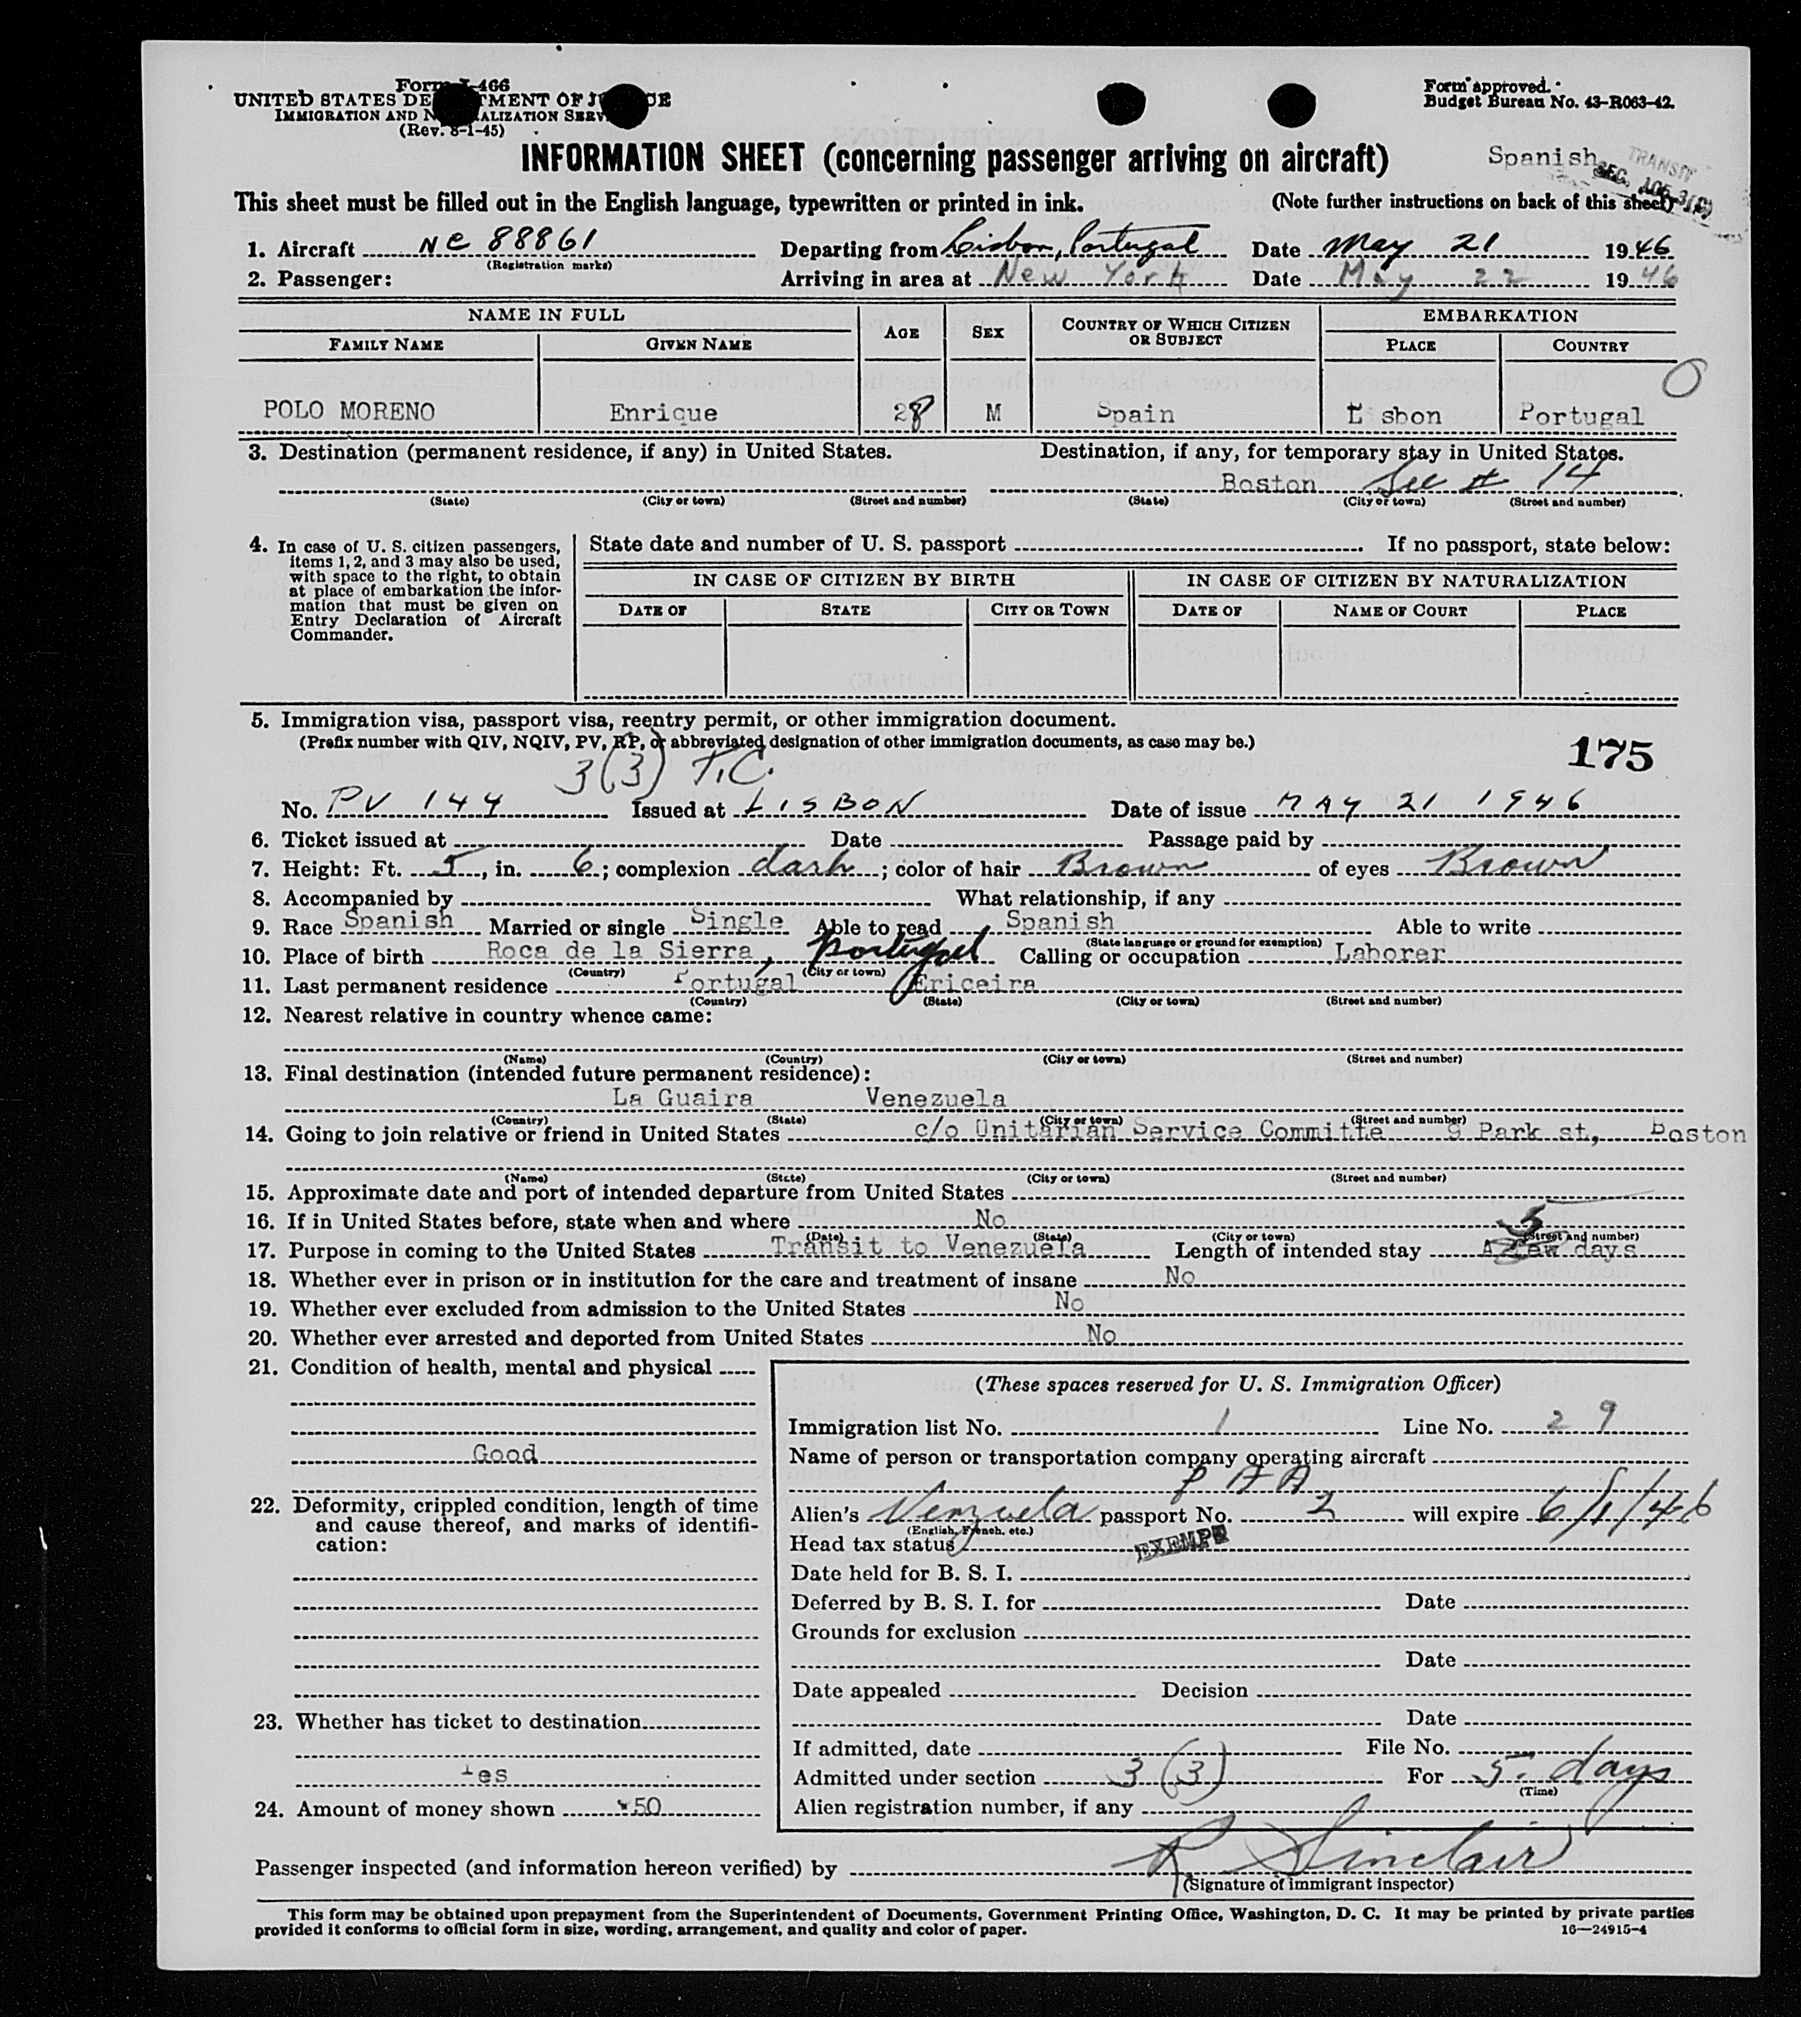 Form I-466
UNITED STATES DEPARTMENT OF JUSTICE
IMMIGRATION AND NATURALIZATION SERVICE
(Rev. 8-1-45)
Form approved.
Budget Bureau No. 43-R063-42.
INFORMATION SHEET (concerning passenger arriving on aircraft)
Spanish
TRANSIT
SEC. 105.3(2)
This sheet must be filled out in the English language, typewritten or printed in ink. (Note further instructions on back of this sheet)
1. Aircraft NC 88861 Departing from Lisbon, Portugal Date May 21 1946
(Registration marks)
2. Passenger: Arriving in area at New York Date May 22 1946
NAME IN FULL AGE SEX COUNTRY OF WHICH CITIZEN OR SUBJECT EMBARKATION
FAMILY NAME GIVEN NAME PLACE COUNTRY
POLO MORENO Enrique 28 M Spain Lisbon Portugal
3. Destination (permanent residence, if any) in United States. Destination, if any, for temporary stay in United States.
Boston See # 14
(State) (City or town) (Street and number) (State) (City or town) (Street and number)
4. In case of U. S. citizen passengers, items 1, 2, and 3 may also be used, with space to the right, to obtain at place of embarkation the information that must be given on Entry Declaration of Aircraft Commander.
State date and number of U. S. passport If no passport, state below:
IN CASE OF CITIZEN BY BIRTH IN CASE OF CITIZEN BY NATURALIZATION
DATE OF STATE CITY OR TOWN DATE OF NAME OF COURT PLACE
5. Immigration visa, passport visa, reentry permit, or other immigration document.
(Prefix number with QIV, NQIV, PV, RP, or abbreviated designation of other immigration documents, as case may be.)
175
3(3) T.C.
No. PV 144 Issued at LISBON Date of issue MAY 21 1946
6. Ticket issued at Date Passage paid by
7. Height: Ft. 5, in. 6; complexion dark; color of hair Brown of eyes Brown
8. Accompanied by What relationship, if any
9. Race Spanish Married or single Single Able to read Spanish Able to write
(State language or ground for exemption)
10. Place of birth Roca de la Sierra, Portugal Calling or occupation Laborer
(Country) (City or town)
11. Last permanent residence Portugal Ericeira
(Country) (State) (City or town) (Street and number)
12. Nearest relative in country whence came:
(Name) (Country) (City or town) (Street and number)
13. Final destination (intended future permanent residence):
La Guaira Venezuela
(Country) (State) (City or town) (Street and number)
14. Going to join relative or friend in United States c/o Unitarian Service Committe 9 Park st, Boston
(Name) (State) (City or town) (Street and number)
15. Approximate date and port of intended departure from United States
16. If in United States before, state when and where No
(Date) (State) (City or town) (Street and number)
5
17. Purpose in coming to the United States Transit to Venezuela Length of intended stay A few days
18. Whether ever in prison or in institution for the care and treatment of insane No
19. Whether ever excluded from admission to the United States No
20. Whether ever arrested and deported from United States No
21. Condition of health, mental and physical
Good
22. Deformity, crippled condition, length of time and cause thereof, and marks of identification:
23. Whether has ticket to destination
Yes
24. Amount of money shown $50
(These spaces reserved for U. S. Immigration Officer)
Immigration list No. 1 Line No. 29
Name of person or transportation company operating aircraft
P A A
Alien's Venzuela passport No. 2 will expire 6/1/46
(English, French, etc.)
Head tax status EXEMPT
Date held for B. S. I.
Deferred by B. S. I. for Date
Grounds for exclusion
Date
Date appealed Decision
Date
If admitted, date File No.
Admitted under section 3(3) For 5 days
(Time)
Alien registration number, if any
Passenger inspected (and information hereon verified) by R Sinclair
(Signature of immigrant inspector)
This form may be obtained upon prepayment from the Superintendent of Documents, Government Printing Office, Washington, D. C. It may be printed by private parties
provided it conforms to official form in size, wording, arrangement, and quality and color of paper. 16—24915-4